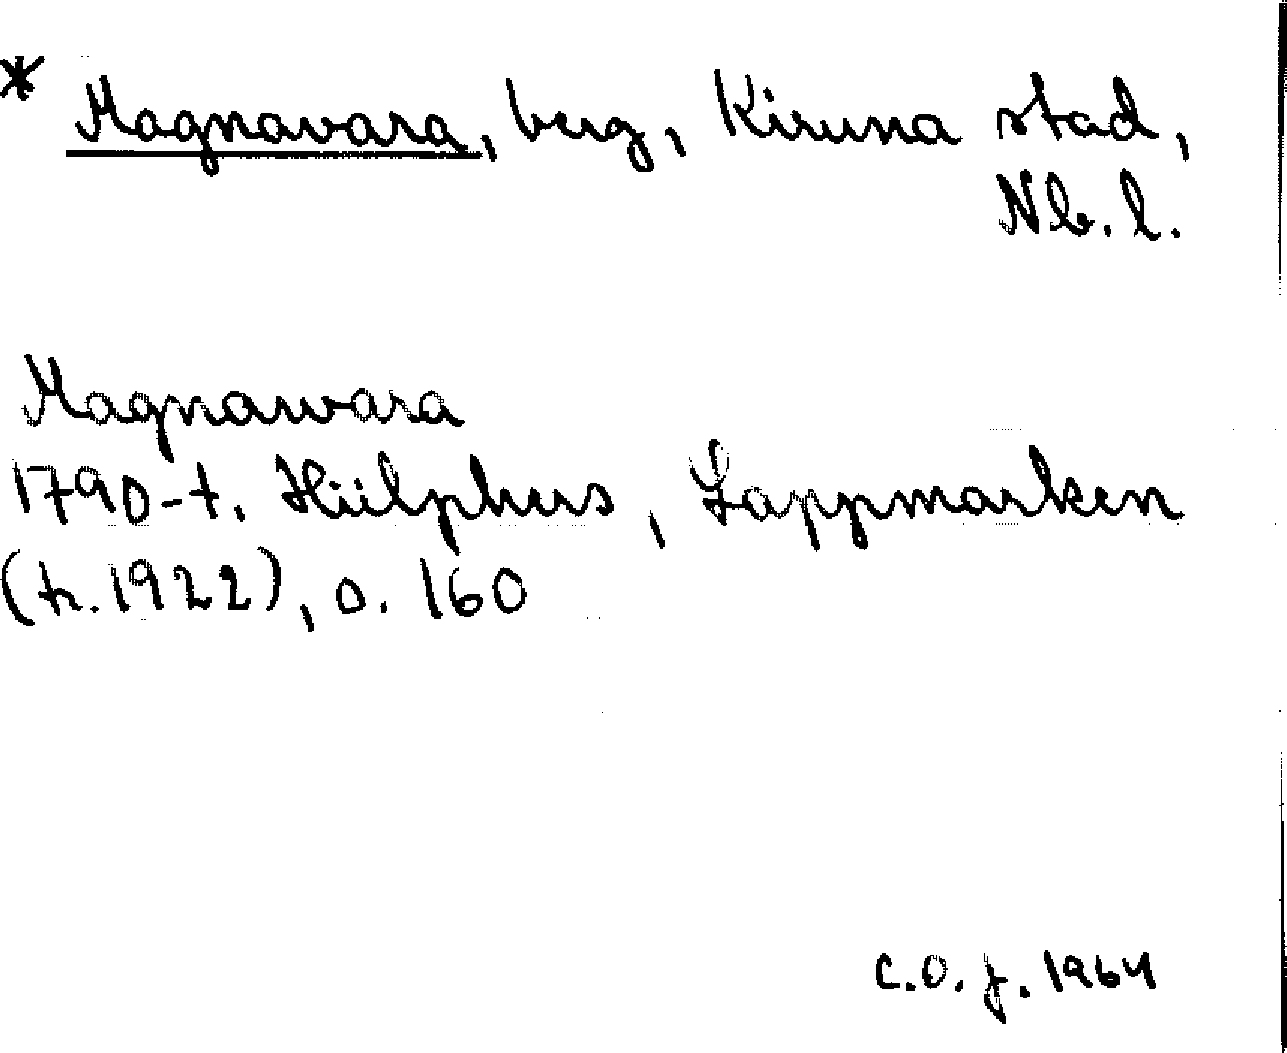 * Magnavara, berg, Kiruna stad,
Nb. l.
Magnawara
1790-t. Hülphers, Lappmarken
(tr. 1922), s. 160
C.O. J. 1964